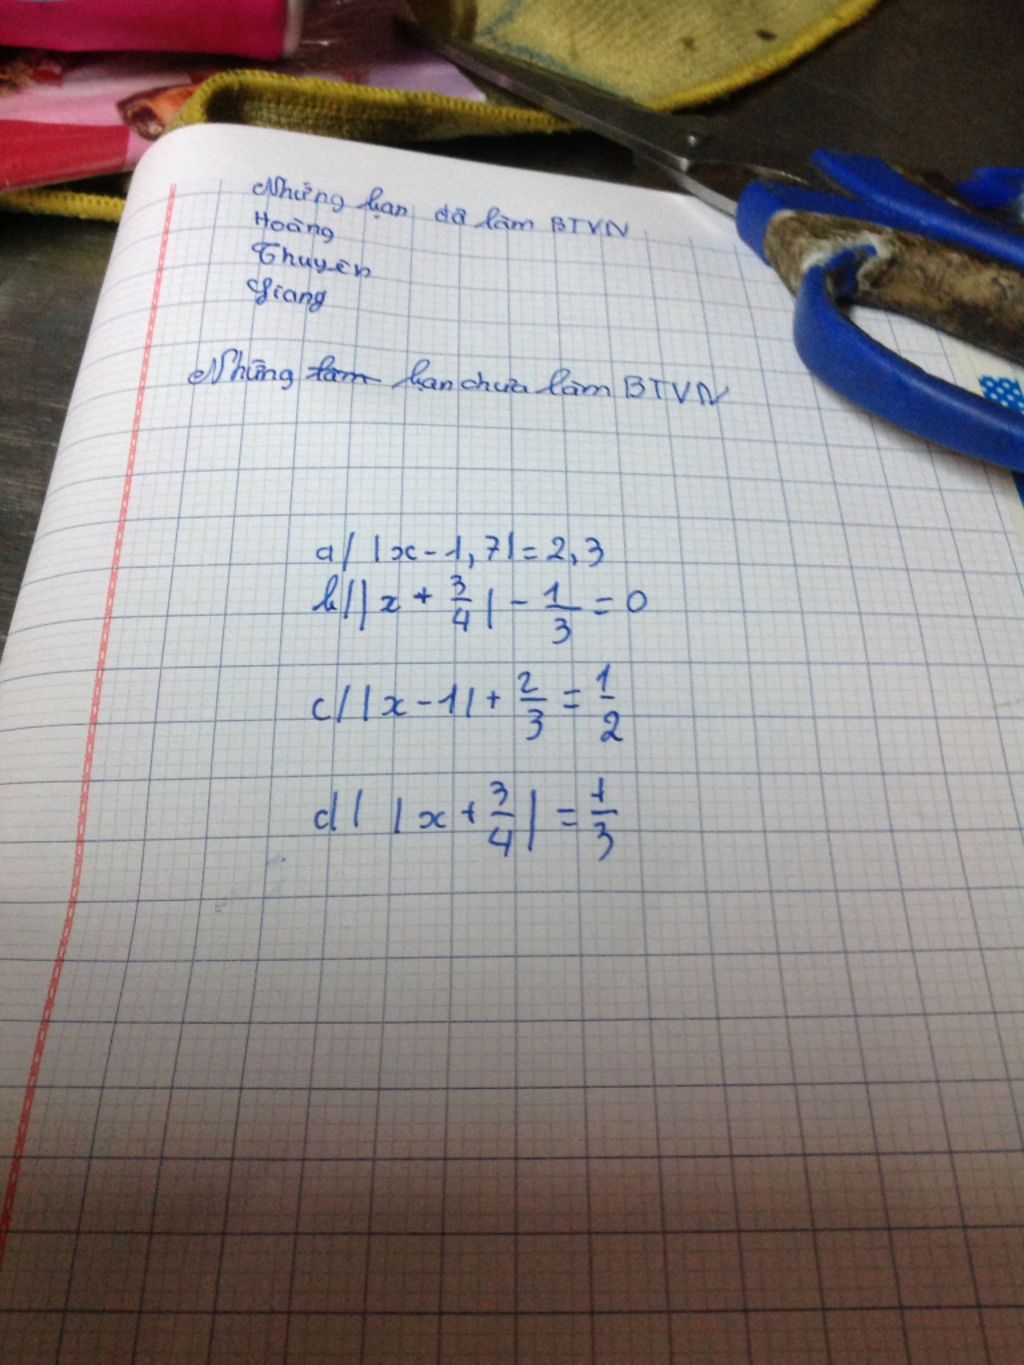 Những bạn đã làm BTVN
Hoàng
Thuyên
Giang
Những làm bạn chưa làm BTVN
a/ |x - 1,7| = 2,3
b/ |x + 3/4| - 1/3 = 0
c/ |x - 1| + 2/3 = 1/2
d/ |x + 3/4| = 1/3